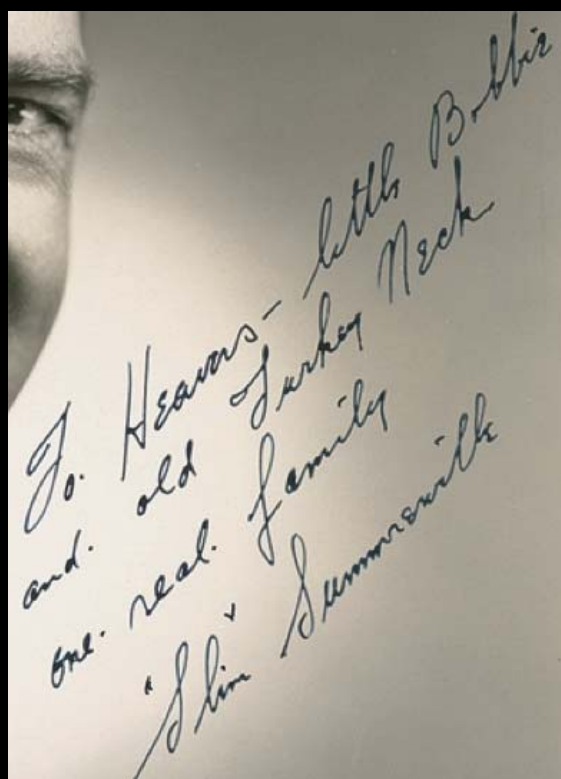 To. Heavers - little Bobbie
and. old Turkey Neck
one. real. family
"Slim" Summerville